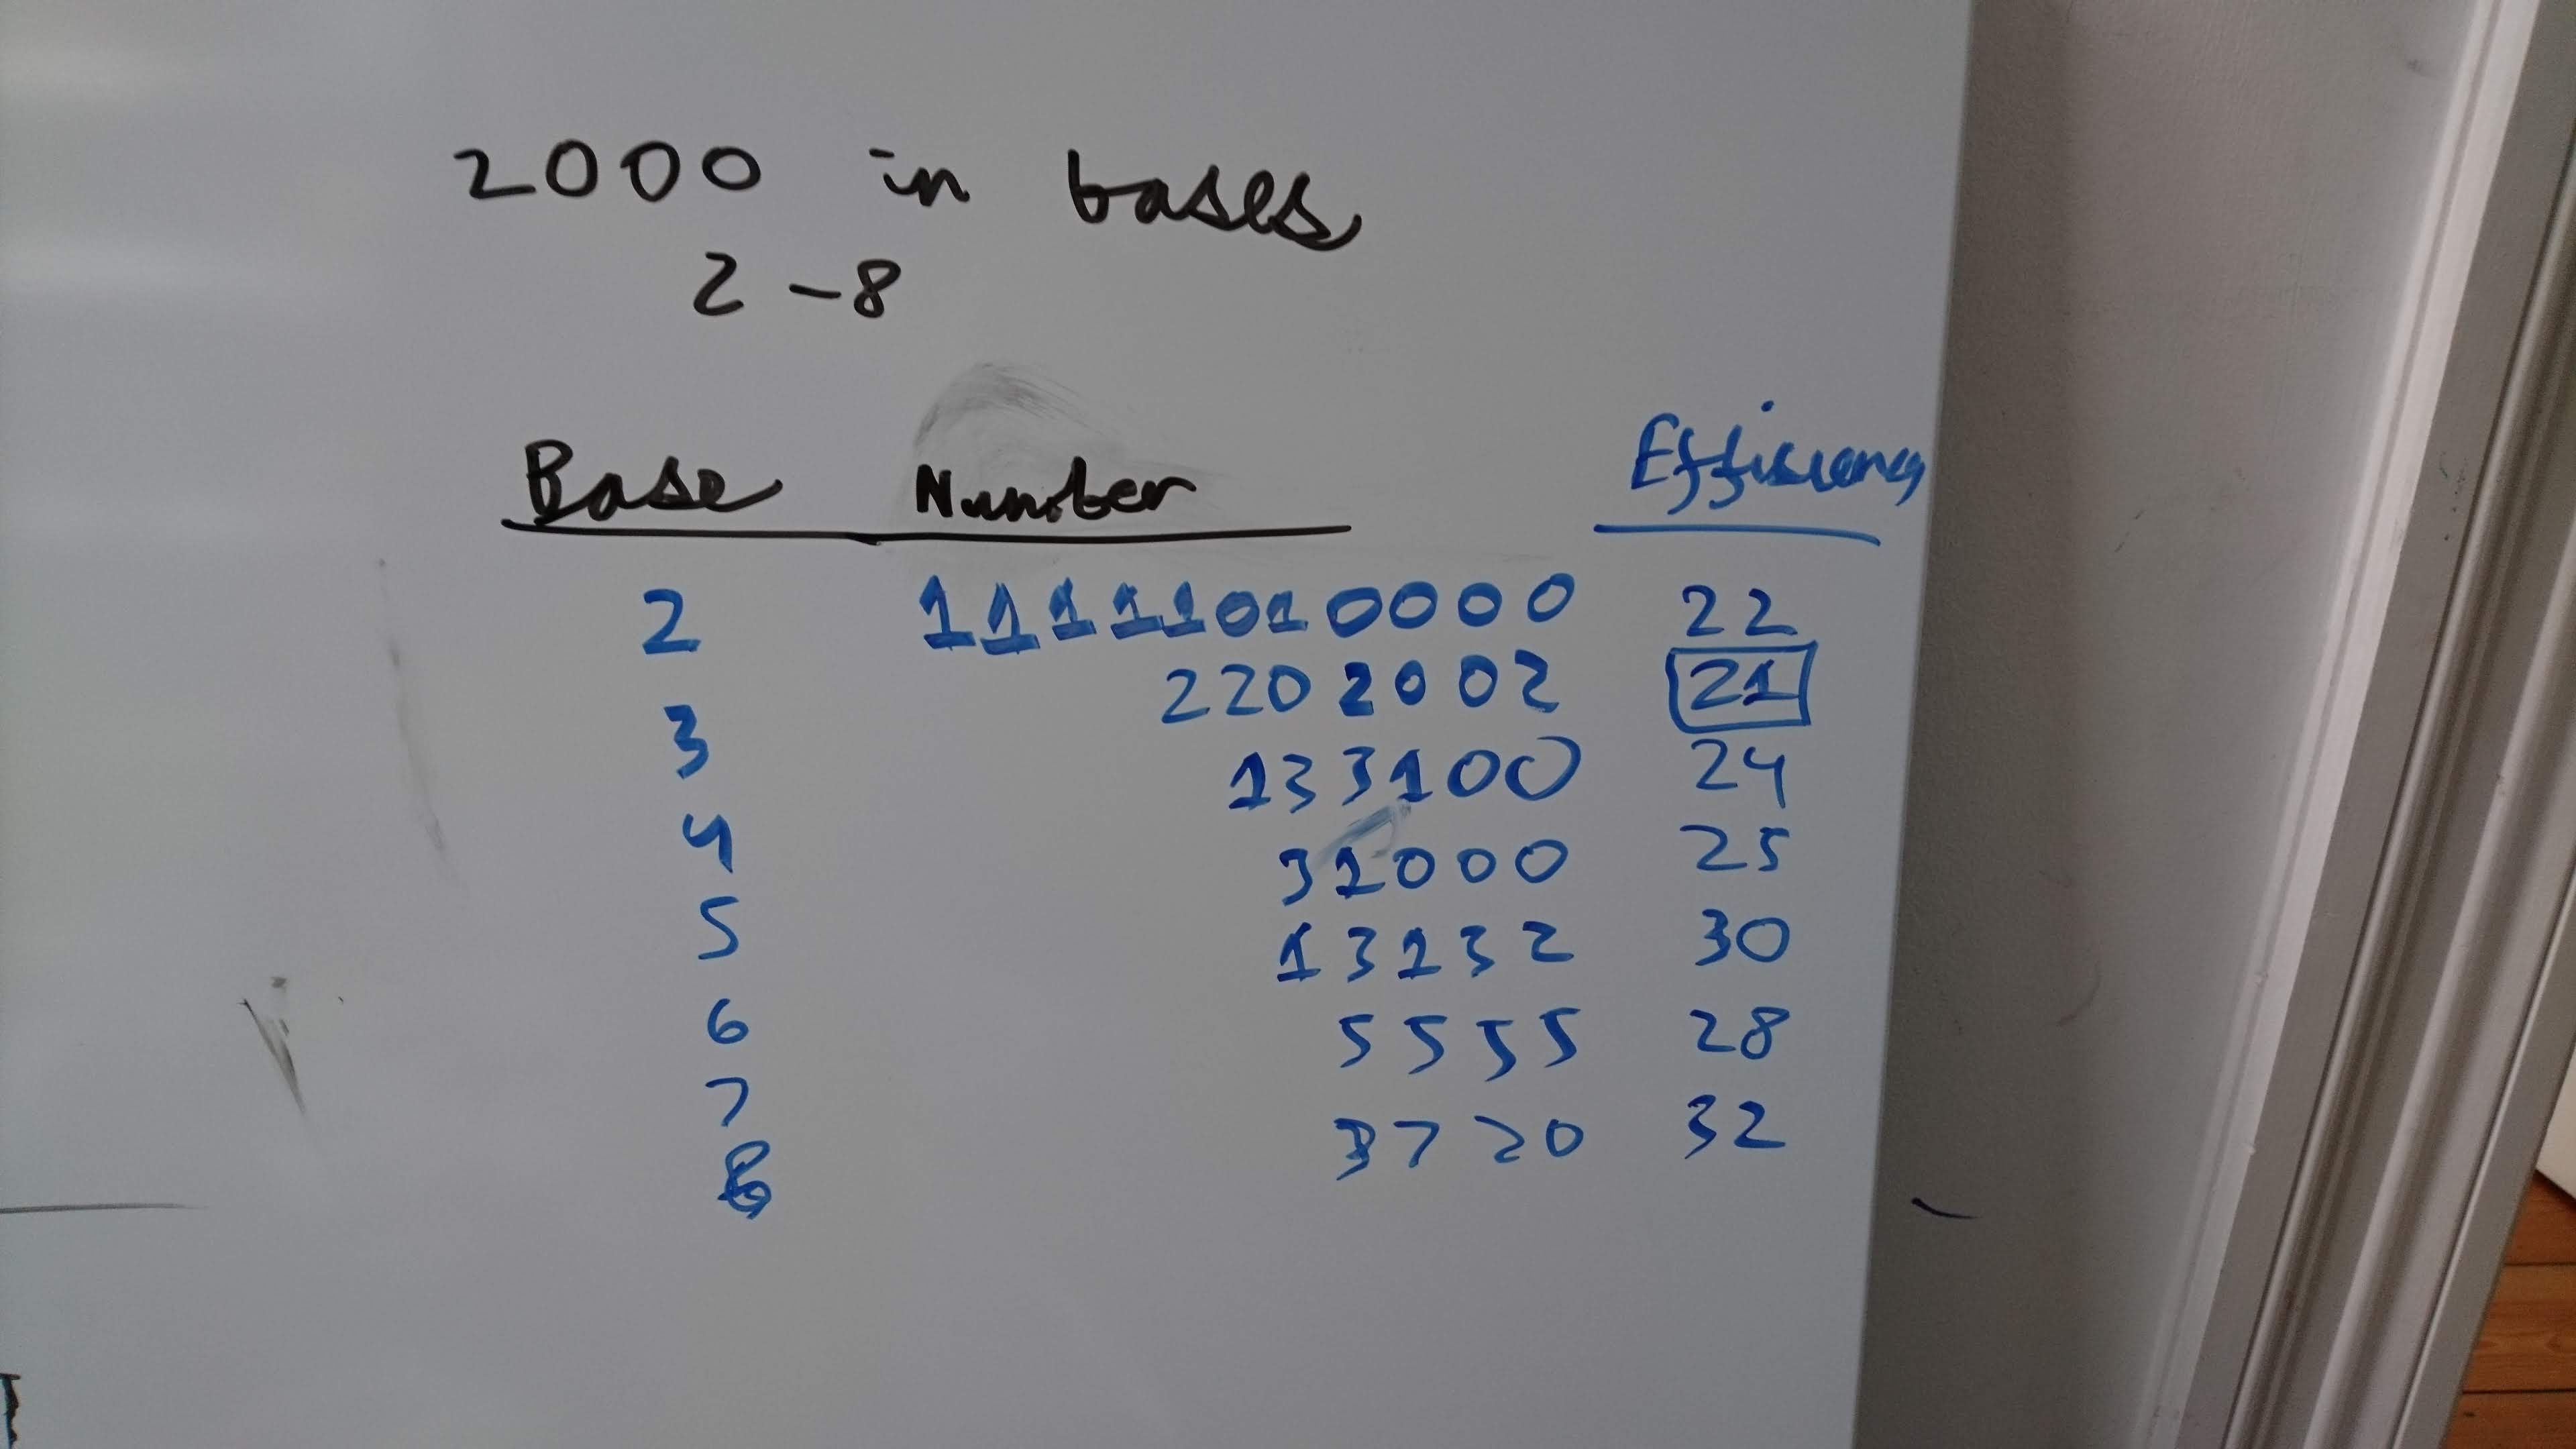 2000 in bases
2-8
Base Number Efficiency
2 11111010000 22
3 2202002 21
4 133100 24
5 31000 25
6 13132 30
7 5555 28
8 3720 32